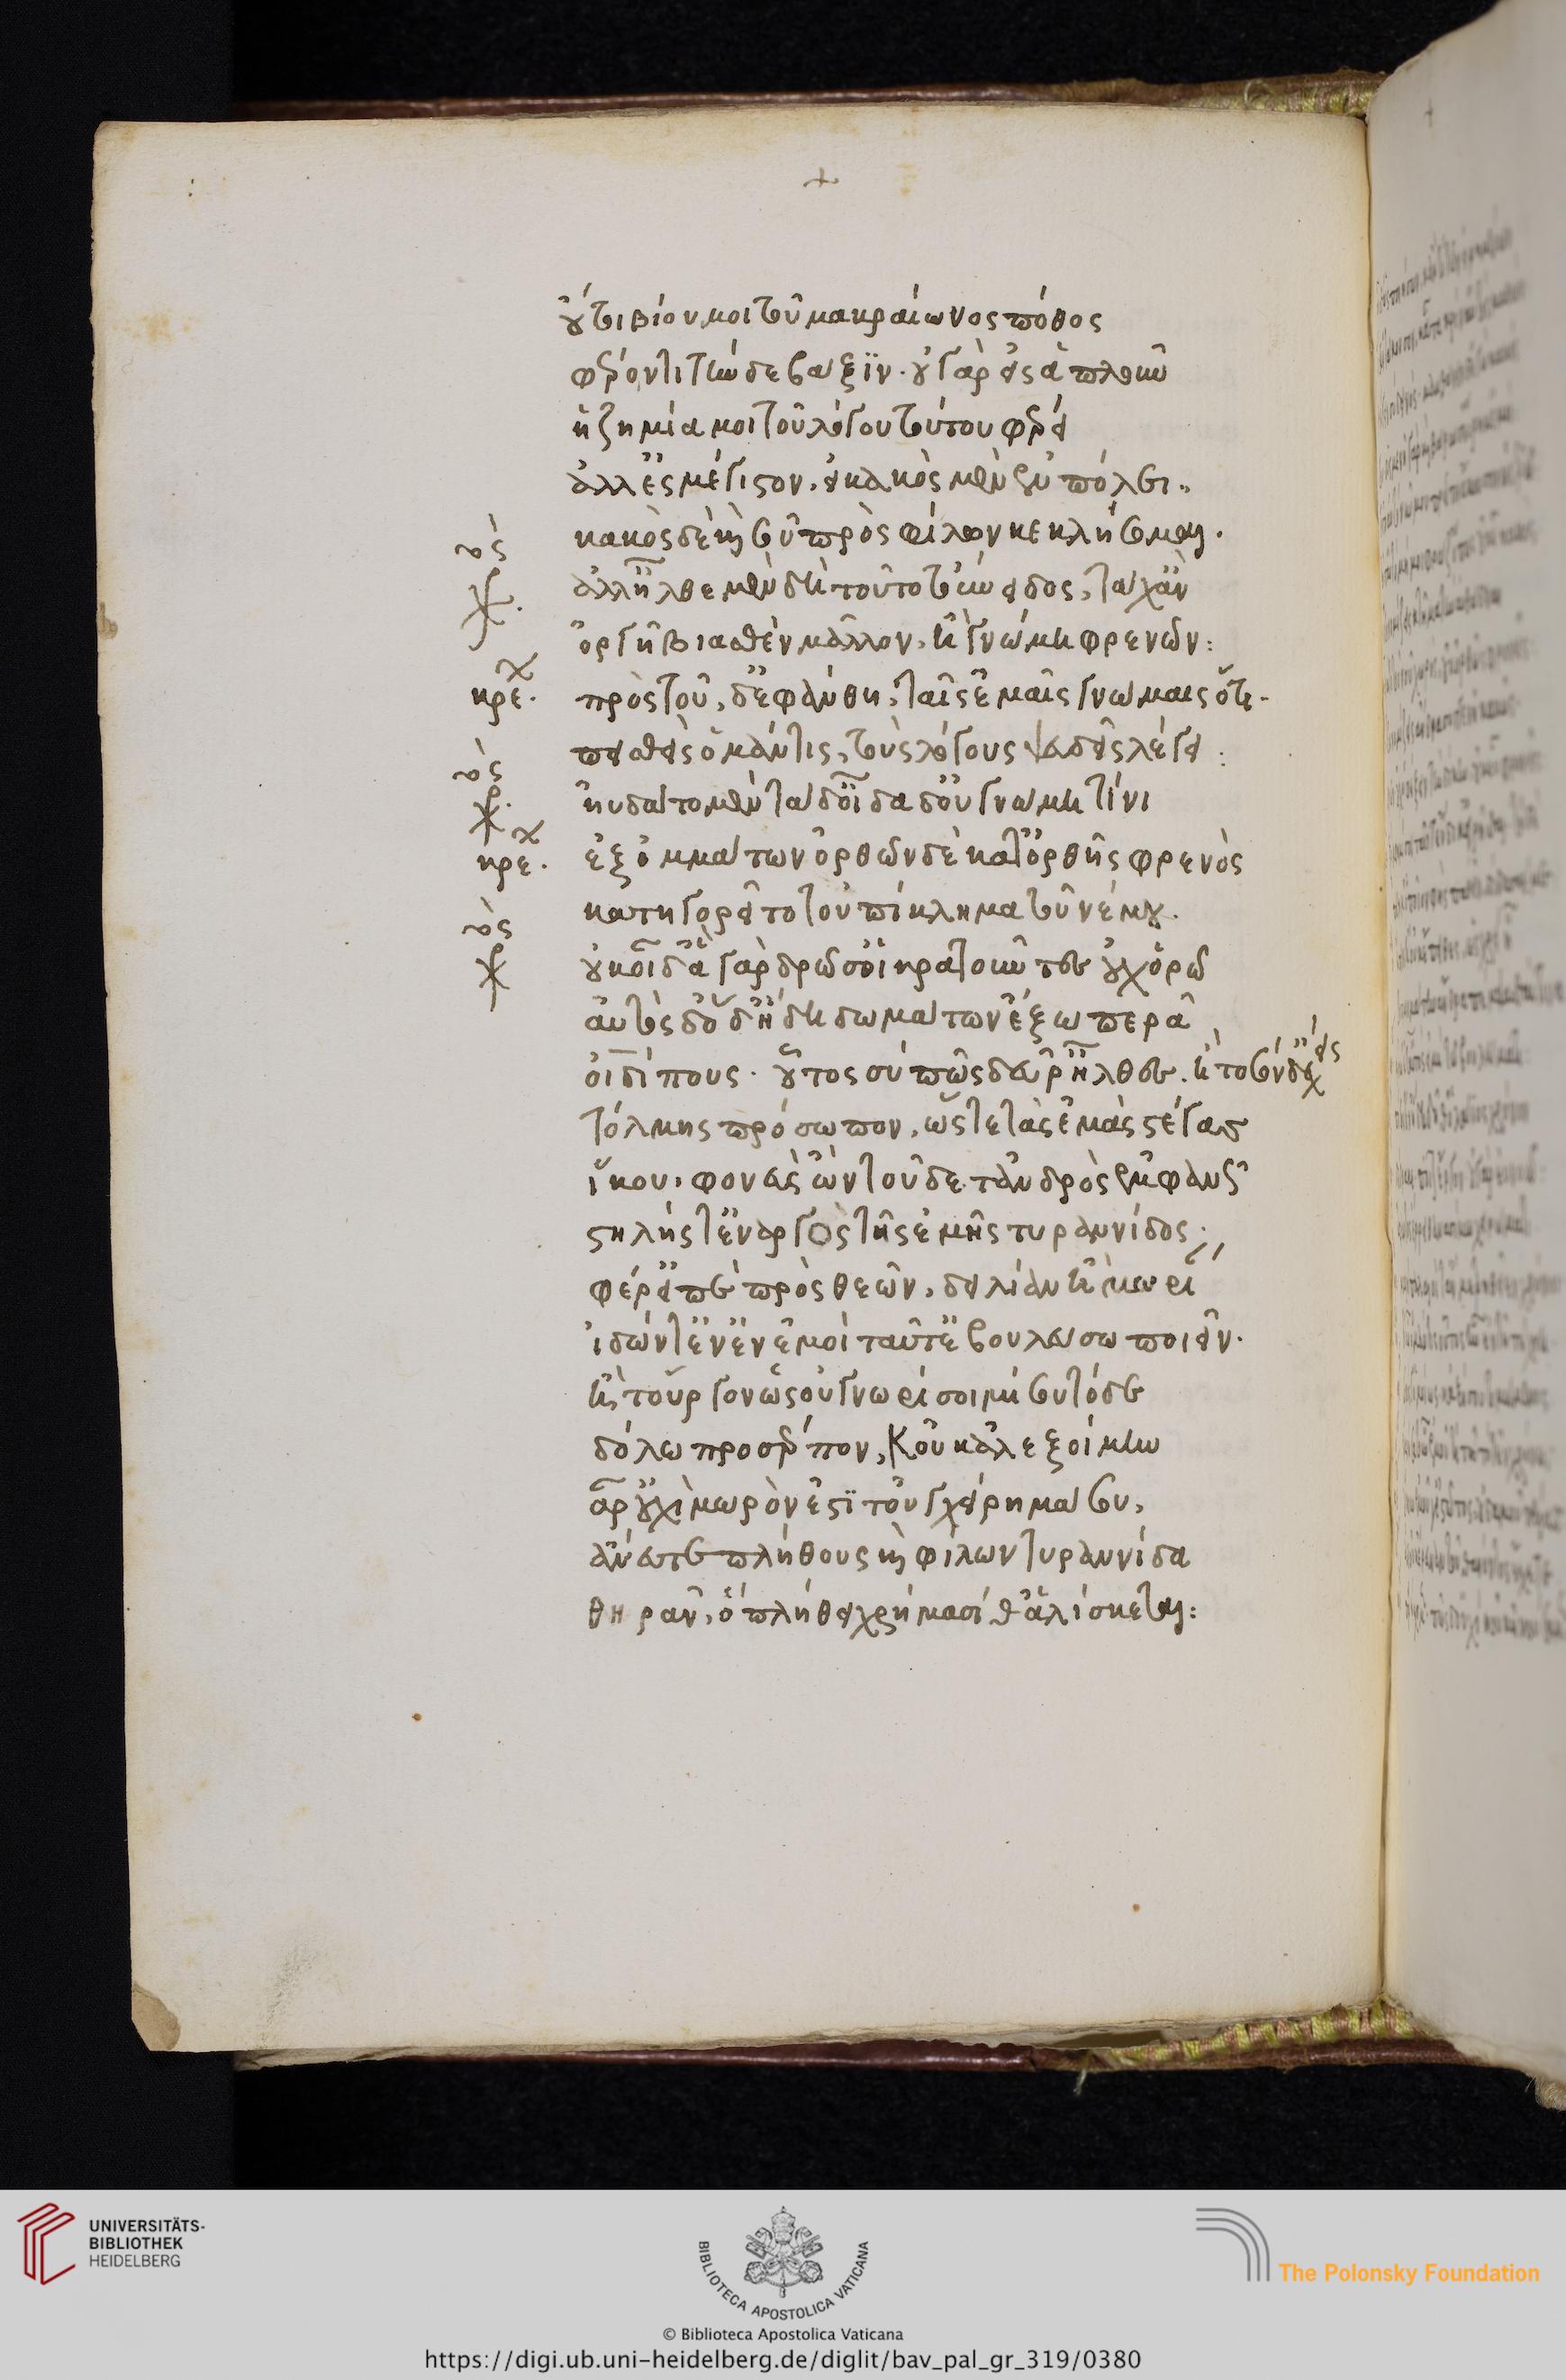 +
οὔτοι βίου μοι τοῦ μακραίωνος πόθος
φέροντι τήνδε βάξιν. οὐ γὰρ εἰς ἁπλοῦν
ἡ ζημία μοι τοῦ λόγου τούτου φέρει
ἀλλ' ἐς μέγιστον, εἰ κακὸς μὲν ἐν πόλει.
κακὸς δὲ καὶ σοῦ πρὸς φίλων κεκλήσομαι.
χορὸς ἀλλ' ἦλθε μὲν δὴ τοῦτο τοὔνειδος, τάχ' ἂν
ὀργῇ βιασθὲν μᾶλλον, ἢ γνώμῃ φρενῶν:
κρε. πρὸς τοῦ, δ' ἐφάνθη, ταῖς ἐμαῖς γνώμαις ὅτι.
πεισθεὶς ὁ μάντις, τοὺς λόγους ψευδεῖς λέγει:
χορὸς ηὐδᾶτο μὲν τάδ' οἶδα δ' οὐ γνώμῃ τίνι
κρε. ἐξ ὀμμάτων ὀρθῶν δὲ κατ' ὀρθῆς φρενὸς
κατηγορεῖτο τοὐπίκλημα
χορὸς οὐκ οἶδ' ἃ γὰρ δρῶσ' οἱ κρατοῦντες οὐχ ὁρῶ
αὐτὸς δ' ὅδ' ἤδη δωμάτων ἔξω περᾷ
οἰδίπους. οὗτος σύ πῶς δεῦρ' ἦλθες. ἢ τοσόνδ' ἔχεις
τόλμης πρόσωπον, ὥστε τὰς ἐμὰς στέγας
ἵκου. φονεὺς ὢν τοῦδε τἀνδρὸς ἐμφανῶς
τ' ἐναργὸς τῆς ἐμῆς τυραννίδος.
φέρ' εἰπὲ πρὸς θεῶν, δειλίαν ἢ μωρί
ἰδών ἐν ἐμοὶ ταῦτ' ἐβουλεύσω ποιεῖν.
ἢ τοὔργον ὡς οὐ γνωρίσοιμί σου τόδε
δόλω προσέρπον, κοὐκ ἀλεξοίμην
ἆρ' οὐχὶ μωρὸν ἐστὶ τοὐγχείρημά σου,
ἄνευ τε πλήθους καὶ φίλων τυραννίδα
θηρᾶν, ὃ πλήθει χρήμασί θ' ἁλίσκεται:
UNIVERSITÄTS-
BIBLIOTHEK
HEIDELBERG
BIBLIOTECA APOSTOLICA VATICANA
The Polonsky Foundation
© Biblioteca Apostolica Vaticana
https://digi.ub.uni-heidelberg.de/diglit/bav_pal_gr_319/0380